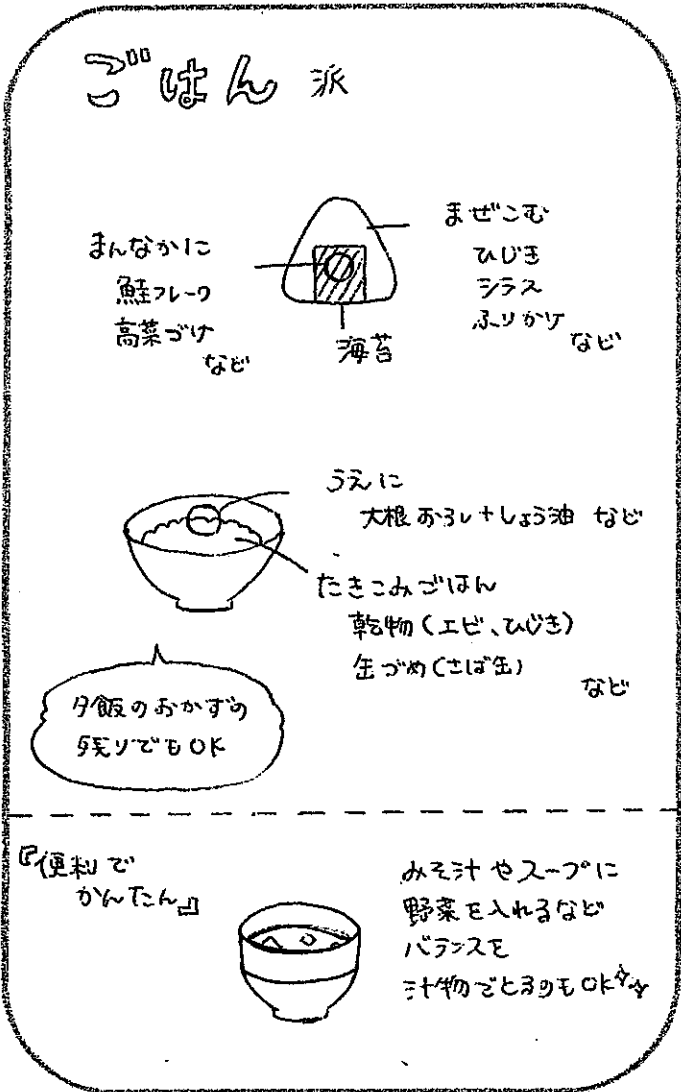 ごはん 派
まんなかに
鮭フレーク
高菜づけ
など
海苔
まぜこむ
ひじき
シラス
ふりかけ
など
うえに
大根おろし+しょう油 など
たきこみごはん
乾物(エビ、ひじき)
缶づめ(さば缶)
など
夕飯のおかずの
残りでもOK
『便利で
かんたん』
みそ汁やスープに
野菜を入れるなど
バランスを
汁物でとるのもOK